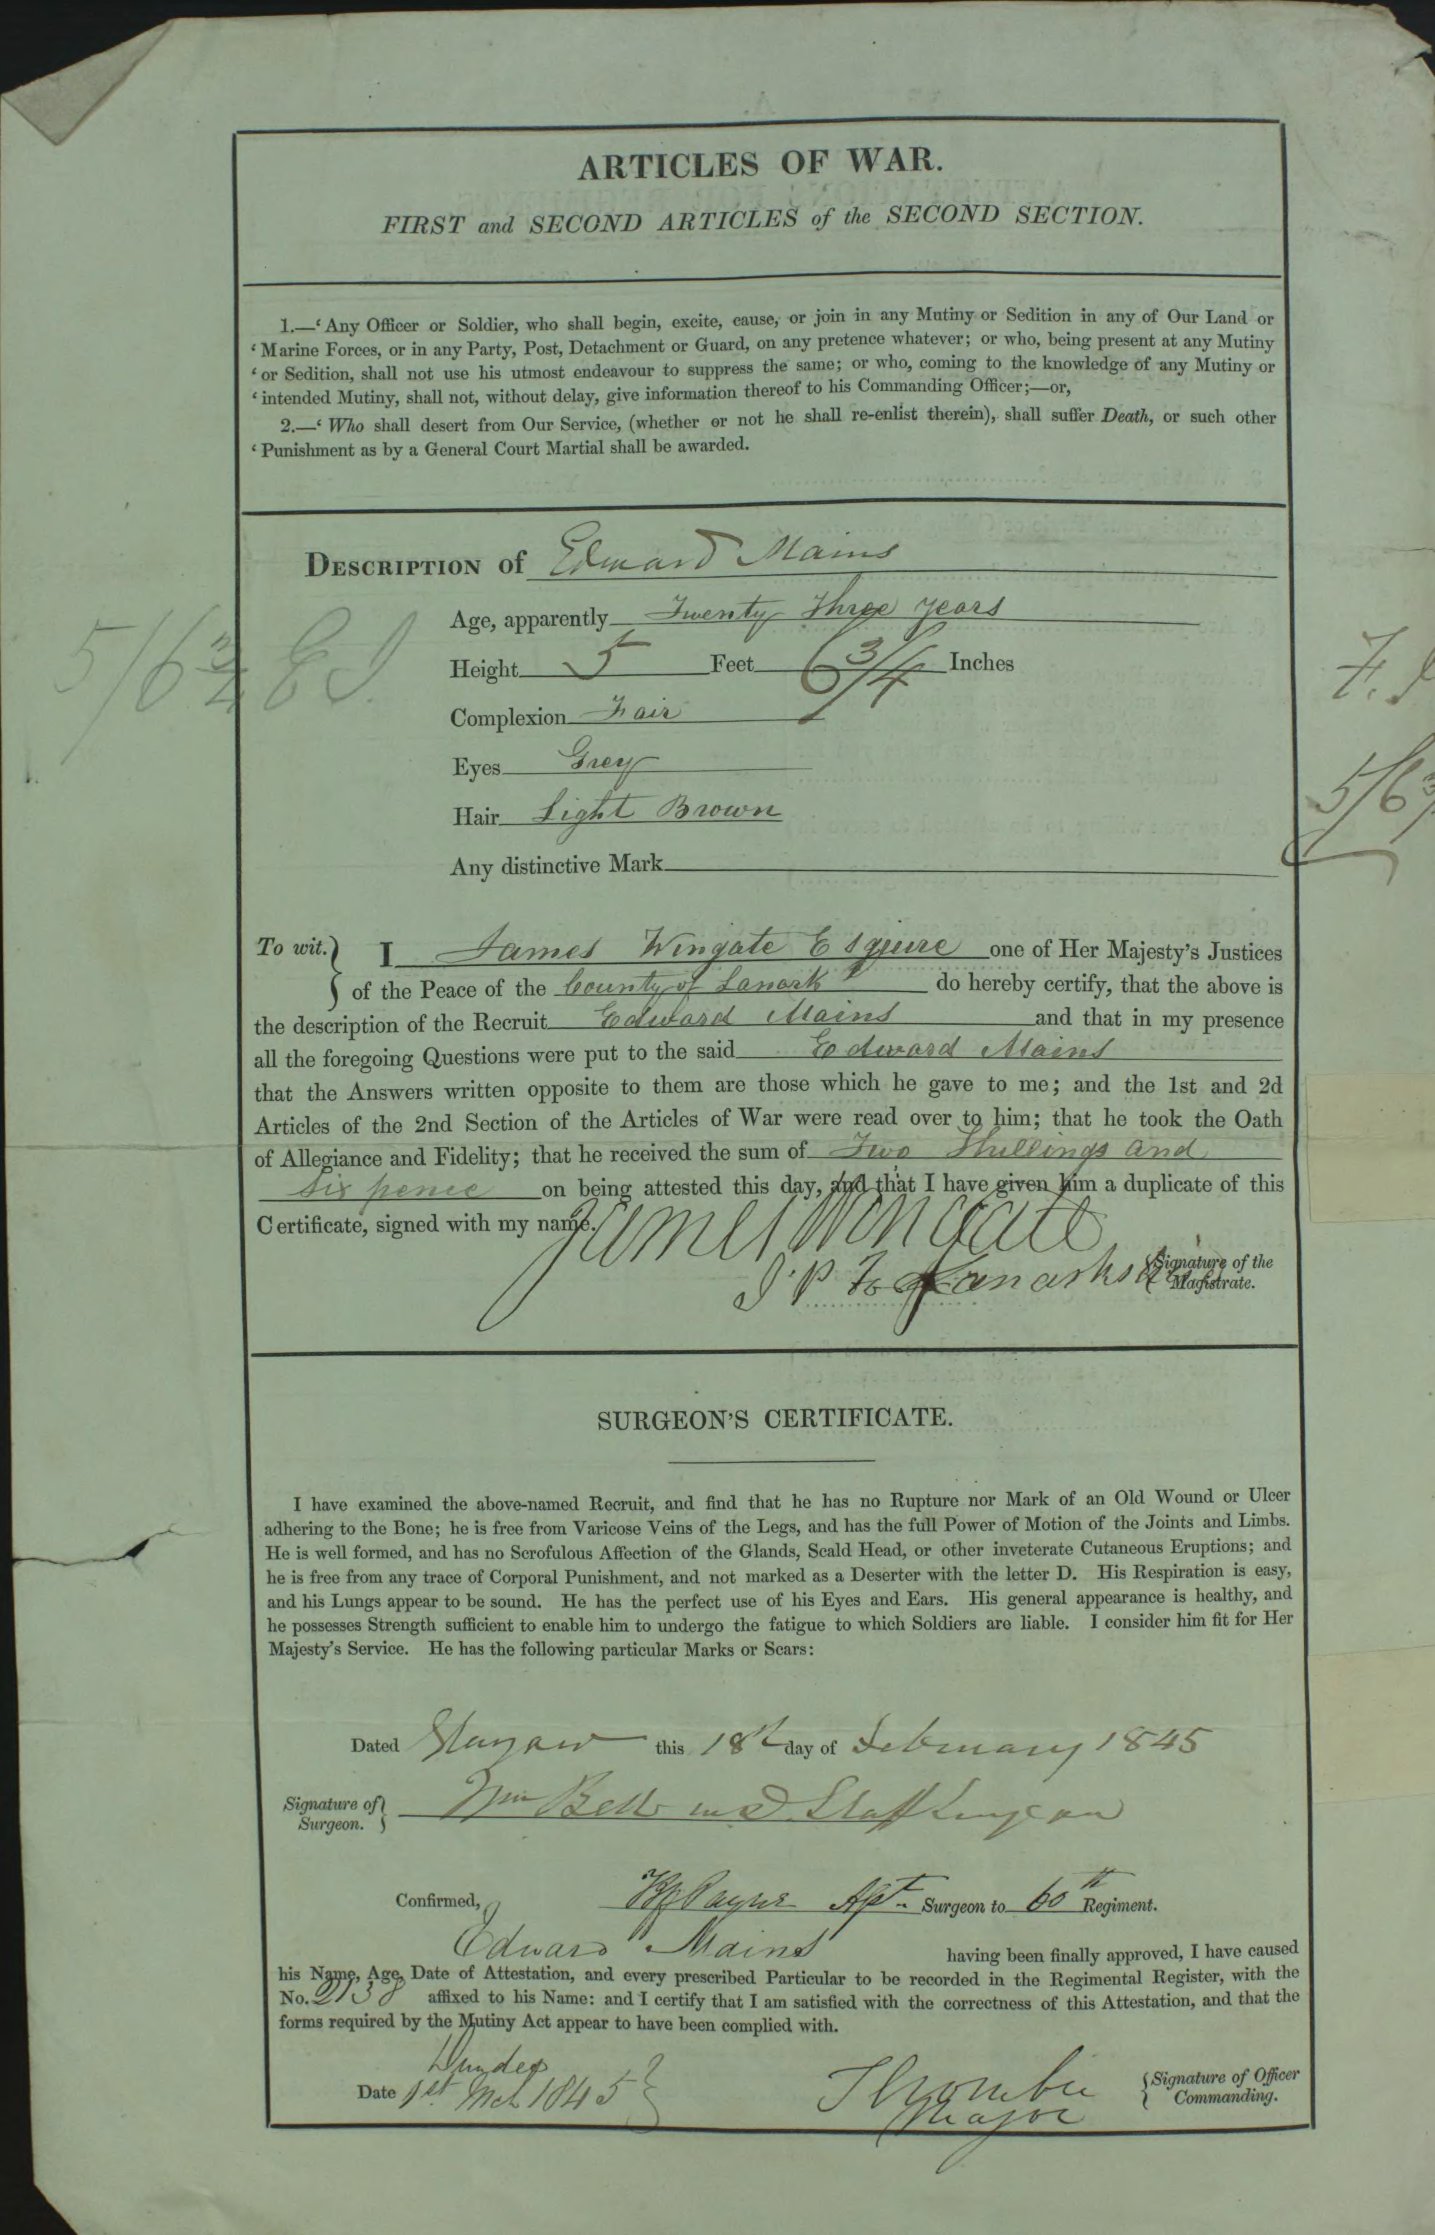 ARTICLES OF WAR.
FIRST and SECOND ARTICLES of the SECOND SECTION.
1.—‘Any Officer or Soldier, who shall begin, excite, cause, or join in any Mutiny or Sedition in any of Our Land or
‘Marine Forces, or in any Party, Post, Detachment or Guard, on any pretence whatever; or who, being present at any Mutiny
‘or Sedition, shall not use his utmost endeavour to suppress the same; or who, coming to the knowledge of any Mutiny or
‘intended Mutiny, shall not, without delay, give information thereof to his Commanding Officer;—or,
2.—‘Who shall desert from Our Service, (whether or not he shall re-enlist therein), shall suffer Death, or such other
‘Punishment as by a General Court Martial shall be awarded.
DESCRIPTION of Edward Mains
Age, apparently Twenty three years
5/6 3/4
Height 5 Feet 6 3/4 Inches
Complexion Fair
Eyes Grey
5/6 3/
Hair Light Brown
Any distinctive Mark
To wit. } I James Wingate Esquire one of Her Majesty's Justices
of the Peace of the County of Lanark do hereby certify, that the above is
the description of the Recruit Edward Mains and that in my presence
all the foregoing Questions were put to the said Edward Mains
that the Answers written opposite to them are those which he gave to me; and the 1st and 2d
Articles of the 2nd Section of the Articles of War were read over to him; that he took the Oath
of Allegiance and Fidelity; that he received the sum of Two Shillings and
Six pence on being attested this day, and that I have given him a duplicate of this
Certificate, signed with my name.
James Wingate
J P Lanarkshire { Signature of the
Magistrate.
SURGEON'S CERTIFICATE.
I have examined the above-named Recruit, and find that he has no Rupture nor Mark of an Old Wound or Ulcer
adhering to the Bone; he is free from Varicose Veins of the Legs, and has the full Power of Motion of the Joints and Limbs.
He is well formed, and has no Scrofulous Affection of the Glands, Scald Head, or other inveterate Cutaneous Eruptions; and
he is free from any trace of Corporal Punishment, and not marked as a Deserter with the letter D. His Respiration is easy,
and his Lungs appear to be sound. He has the perfect use of his Eyes and Ears. His general appearance is healthy, and
he possesses Strength sufficient to enable him to undergo the fatigue to which Soldiers are liable. I consider him fit for Her
Majesty's Service. He has the following particular Marks or Scars:
Dated Glasgow this 18th day of February 1845
Signature of
Surgeon. } Wm Bell MD Staff Surgeon
Confirmed, Payne Ast. Surgeon to 60th Regiment.
Edward Mains having been finally approved, I have caused
his Name, Age, Date of Attestation, and every prescribed Particular to be recorded in the Regimental Register, with the
No. 2138 affixed to his Name: and I certify that I am satisfied with the correctness of this Attestation, and that the
forms required by the Mutiny Act appear to have been complied with.
Dundee
Date 1st Mch 1845 } { Signature of Officer
Commanding.
Major